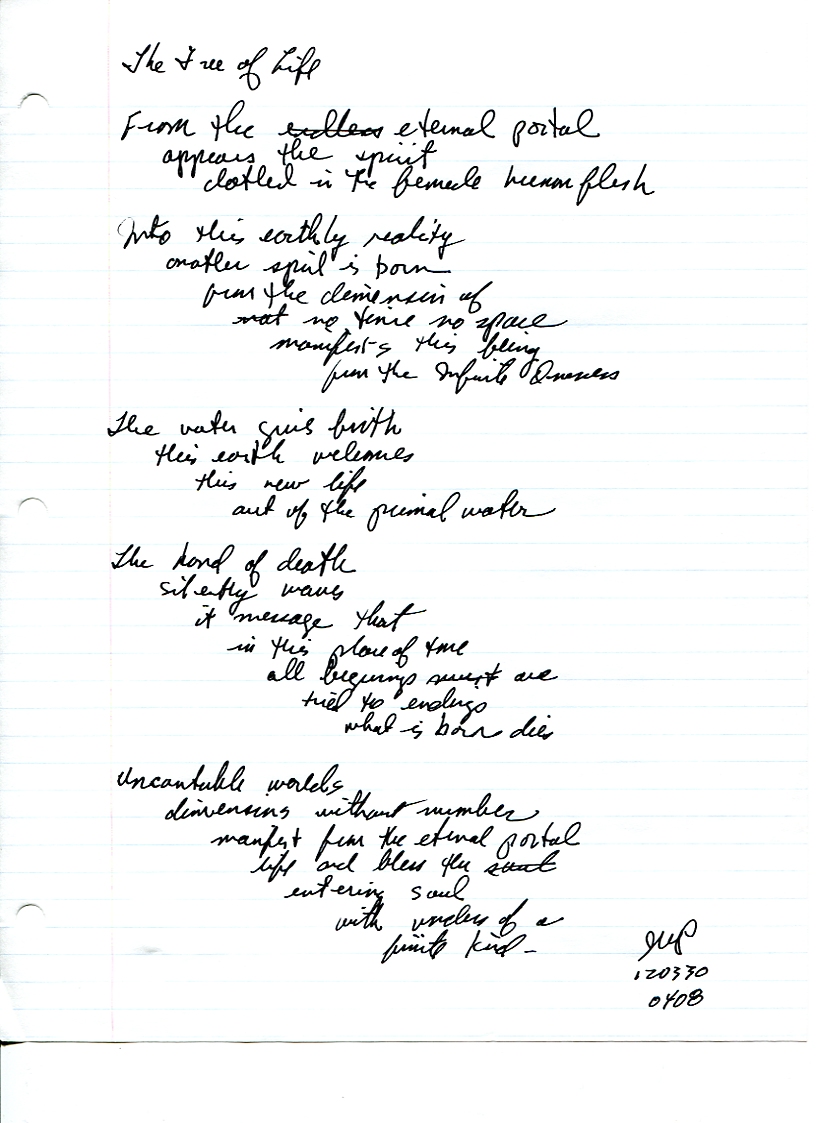 The Tree of Life
From the endless eternal portal
appears the spirit
clothed in the female human flesh
Into this earthly reality
another spirit is born
from the dimension of
not no time no space
manifests this being
from the Infinite Oneness
The water gives birth
this earth welcomes
this new life
out of the primal water
The hand of death
silently waves
it message that
in this place of time
all beginings must are
tied to endings
what is born dies
Uncountable worlds
dimensions without number
manifest from the eternal portal
life and bless the soul
entering soul
with wonders of a
finite kind -
120330
0408